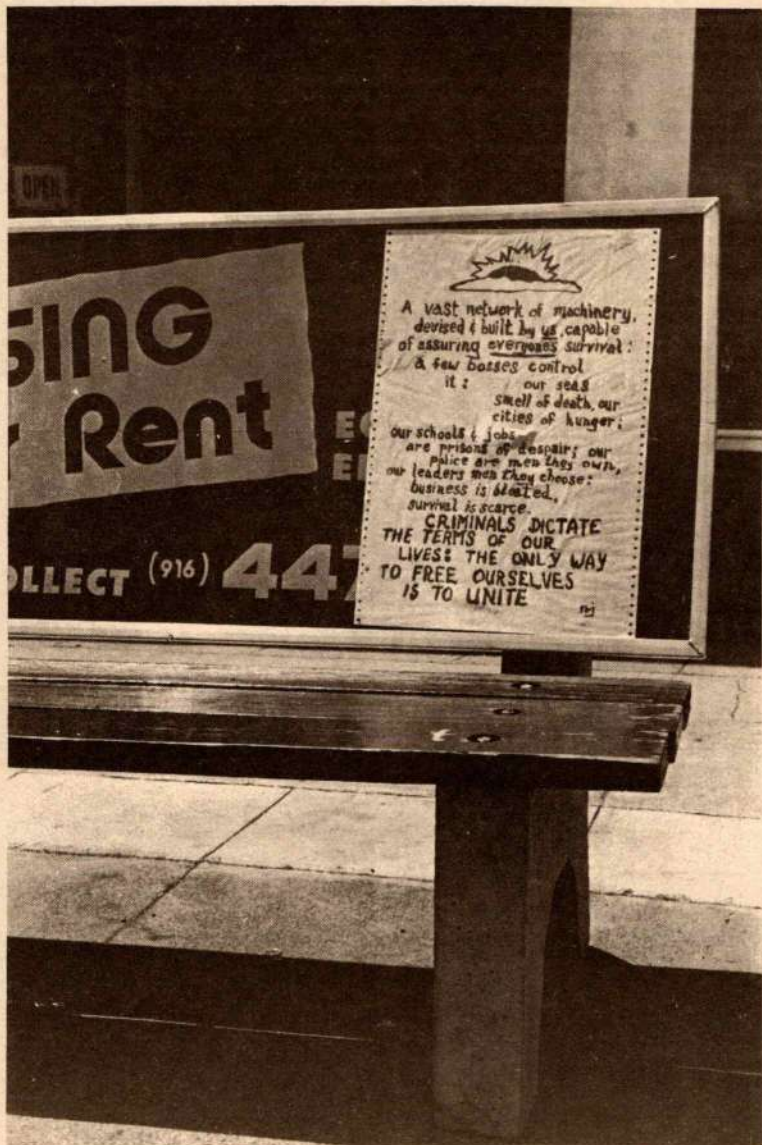 OPEN
SING
r Rent
OLLECT (916) 447
A vast network of machinery,
devised & built by us, capable
of assuring everyone's survival:
a few bosses control
it: our seas
smell of death, our
cities of hunger;
our schools & jobs
are prisons of despair; our
police are men they own,
our leaders men they choose:
business is bloated,
survival is scarce.
CRIMINALS DICTATE
THE TERMS OF OUR
LIVES: THE ONLY WAY
TO FREE OURSELVES
IS TO UNITE